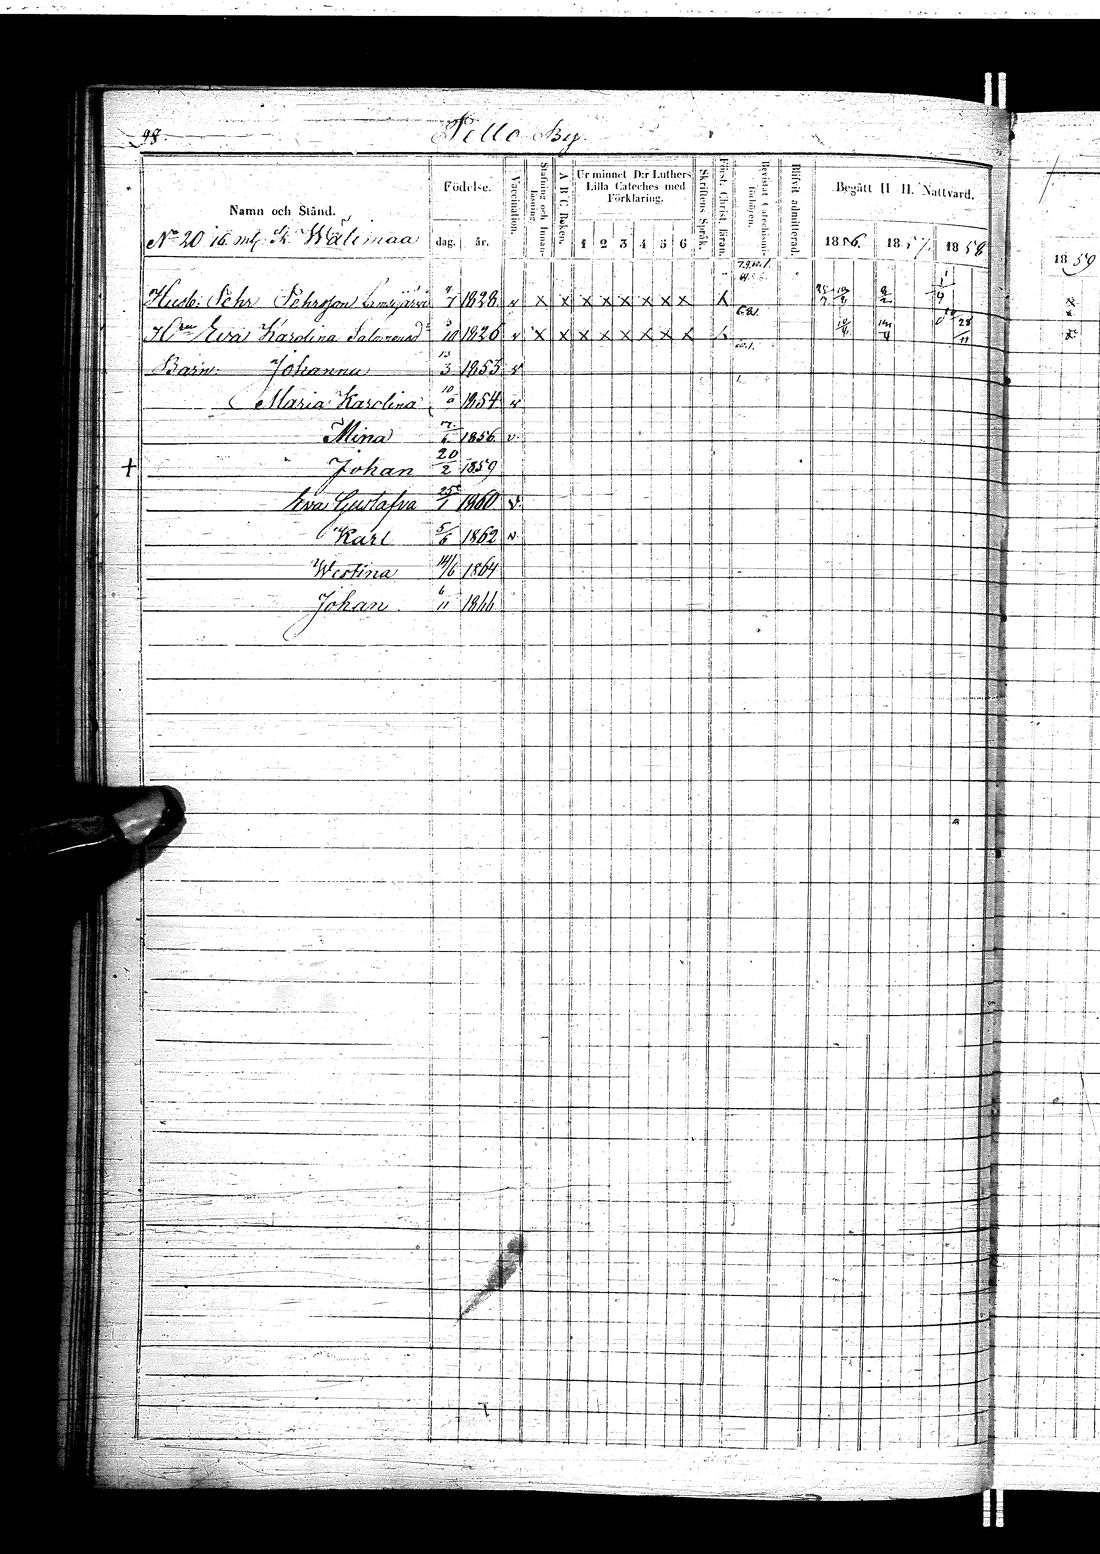 98. Pello By.
Namn och Stånd.
Födelse.
dag. år.
Vaccination.
Stafning och Innanläsning.
A B C Boken.
Ur minnet D:r Luthers Lilla Cateches med Förklaring.
1 2 3 4 5 6
Skriftens Språk.
Först. Christ. läran.
Bevistat Catechismi-förhören.
Blifvit admitterad.
Begått H. H. Nattvard.
1856. 1857. 1858
1859
No 20 Wälimaa
Husb: Pehr Pehrsson 7 1828 v X X X X X X X X X
Eva Karolina 10 1826 v X X X X X X X X
Barn: Johanna 13/3 1853 v
Maria Karolina 1854 v
Mina 1856 v.
+ Johan 20/2 1859
Eva Gustafva 25/1 1860 v.
Karl 5/6 1862 v.
14/6 1864
Johan 6/11 1866